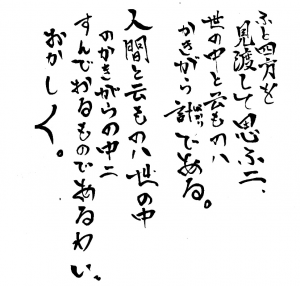 ふと四方を
見渡して思ふニ、
世の中と云ものハ
かきがら計りである。
人間と云ものハ世の中
のかきがらの中ニ
すんでおるものであるわい、
おかしく。